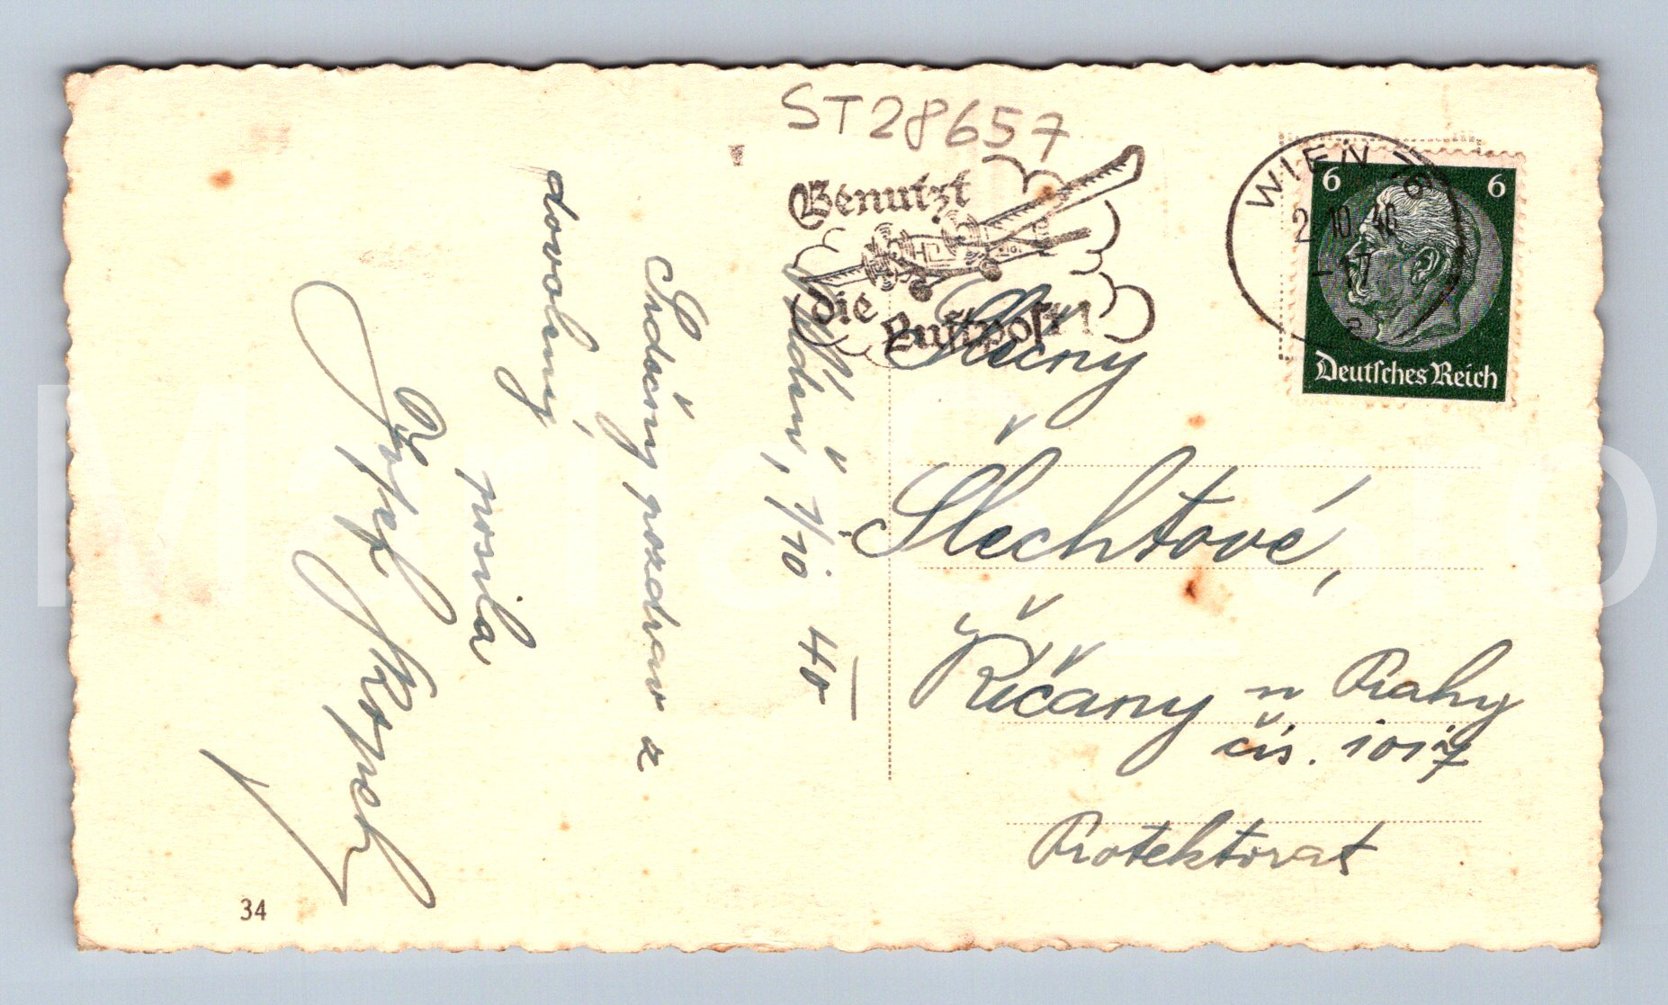 ST28657
Benutzt
die Luftpost!
WIEN 76
2.10.40
6 6
Deutsches Reich
Vídeň, 1/10 40
Srdečný pozdrav z
dovolený
posílá
Josef
Slečny
Šlechtové,
Říčany u Prahy
čís. 1017
Protektorat
34